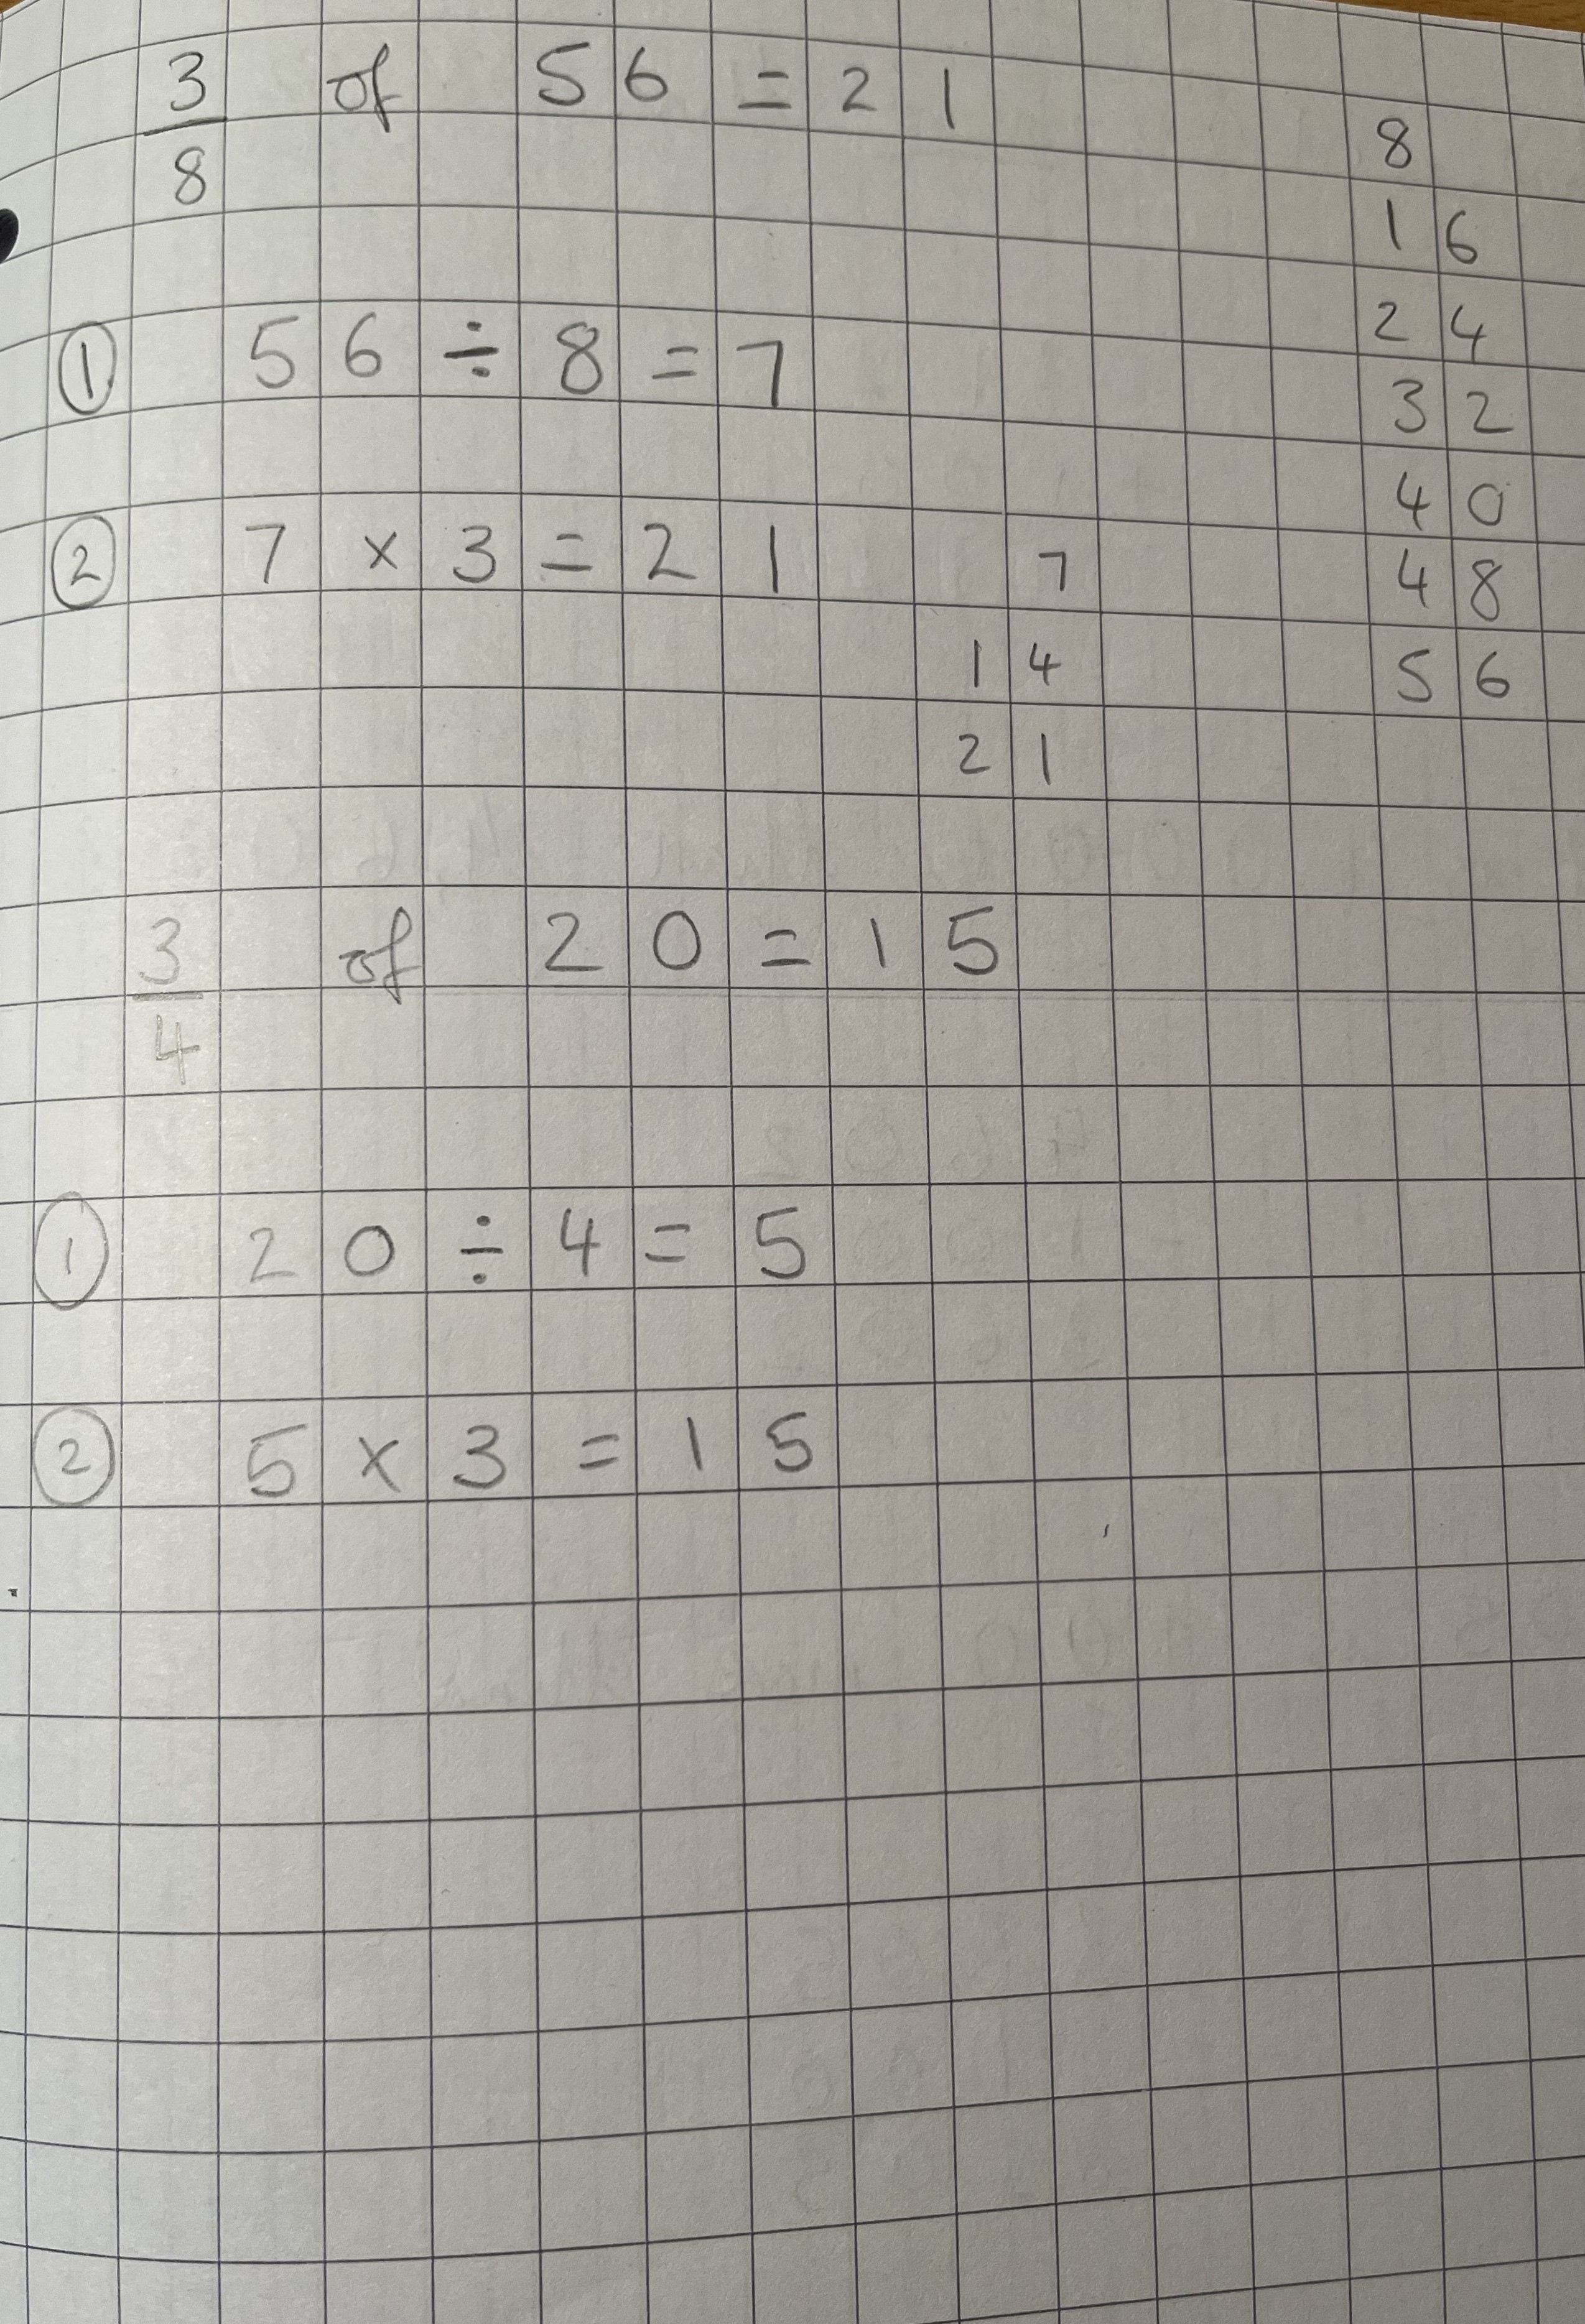 3/8 of 56 = 21
8
16
24
32
40
48
56
① 56 ÷ 8 = 7
② 7 × 3 = 21
7
14
21
3/4 of 20 = 15
① 20 ÷ 4 = 5
② 5 × 3 = 15